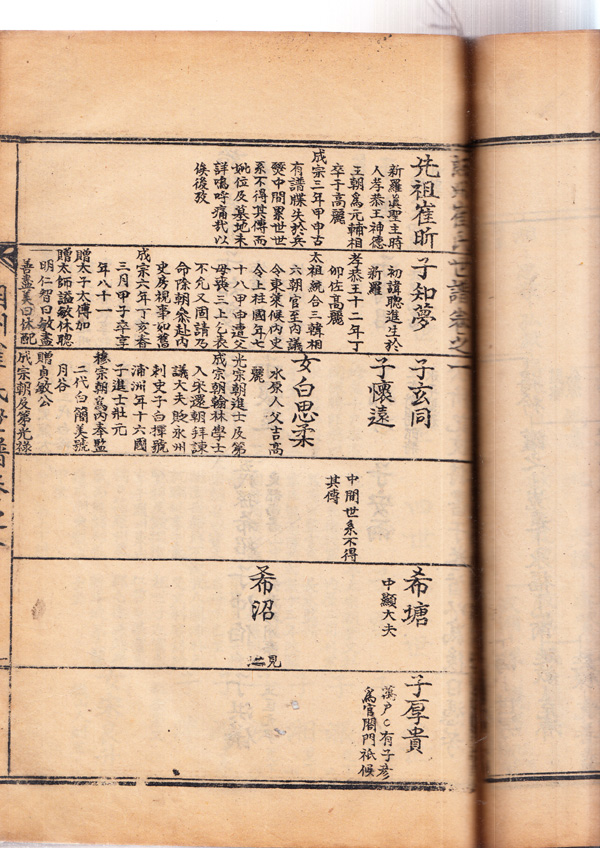 先祖崔昕
新羅眞聖主時
人孝恭王神德
王朝爲元輔相
卒于高麗
成宗三年甲申古
有譜牒失於兵
燹中間累世世
系不得其傳而
妣位及墓地未
詳嗚呼痛哉以
俟後攷
子知夢
初諱聰進生於
新羅
孝恭王十二年丁
卯佐高麗
太祖統合三韓相
六朝官至內議
令東萊候內史
令上柱國年七
十八甲申遭父
母喪三上乞表
不允又固請乃
命除朝叅赴內
史房視事如舊
成宗六年丁亥春
三月甲子卒享
年八十一
贈太子太傅加
贈太師謚敏休聰
明仁智曰敏盡
善盡美曰休配
子玄同
子懷遠
女白思柔
水原人父吉高
麗
光宗朝進士及第
成宗朝翰林學士
入宋還朝拜諫
議大夫貶永州
刺史子白揮號
浦洲年十六國
子進士壯元
穆宗朝爲內奉監
二代白簡美號
月谷
贈貞敏公
成宗朝及第光祿
中間世系不得
其傳
希塘
中顯大夫
希沼
見
子厚貴
萬戶有子彦
爲官閤門祗候